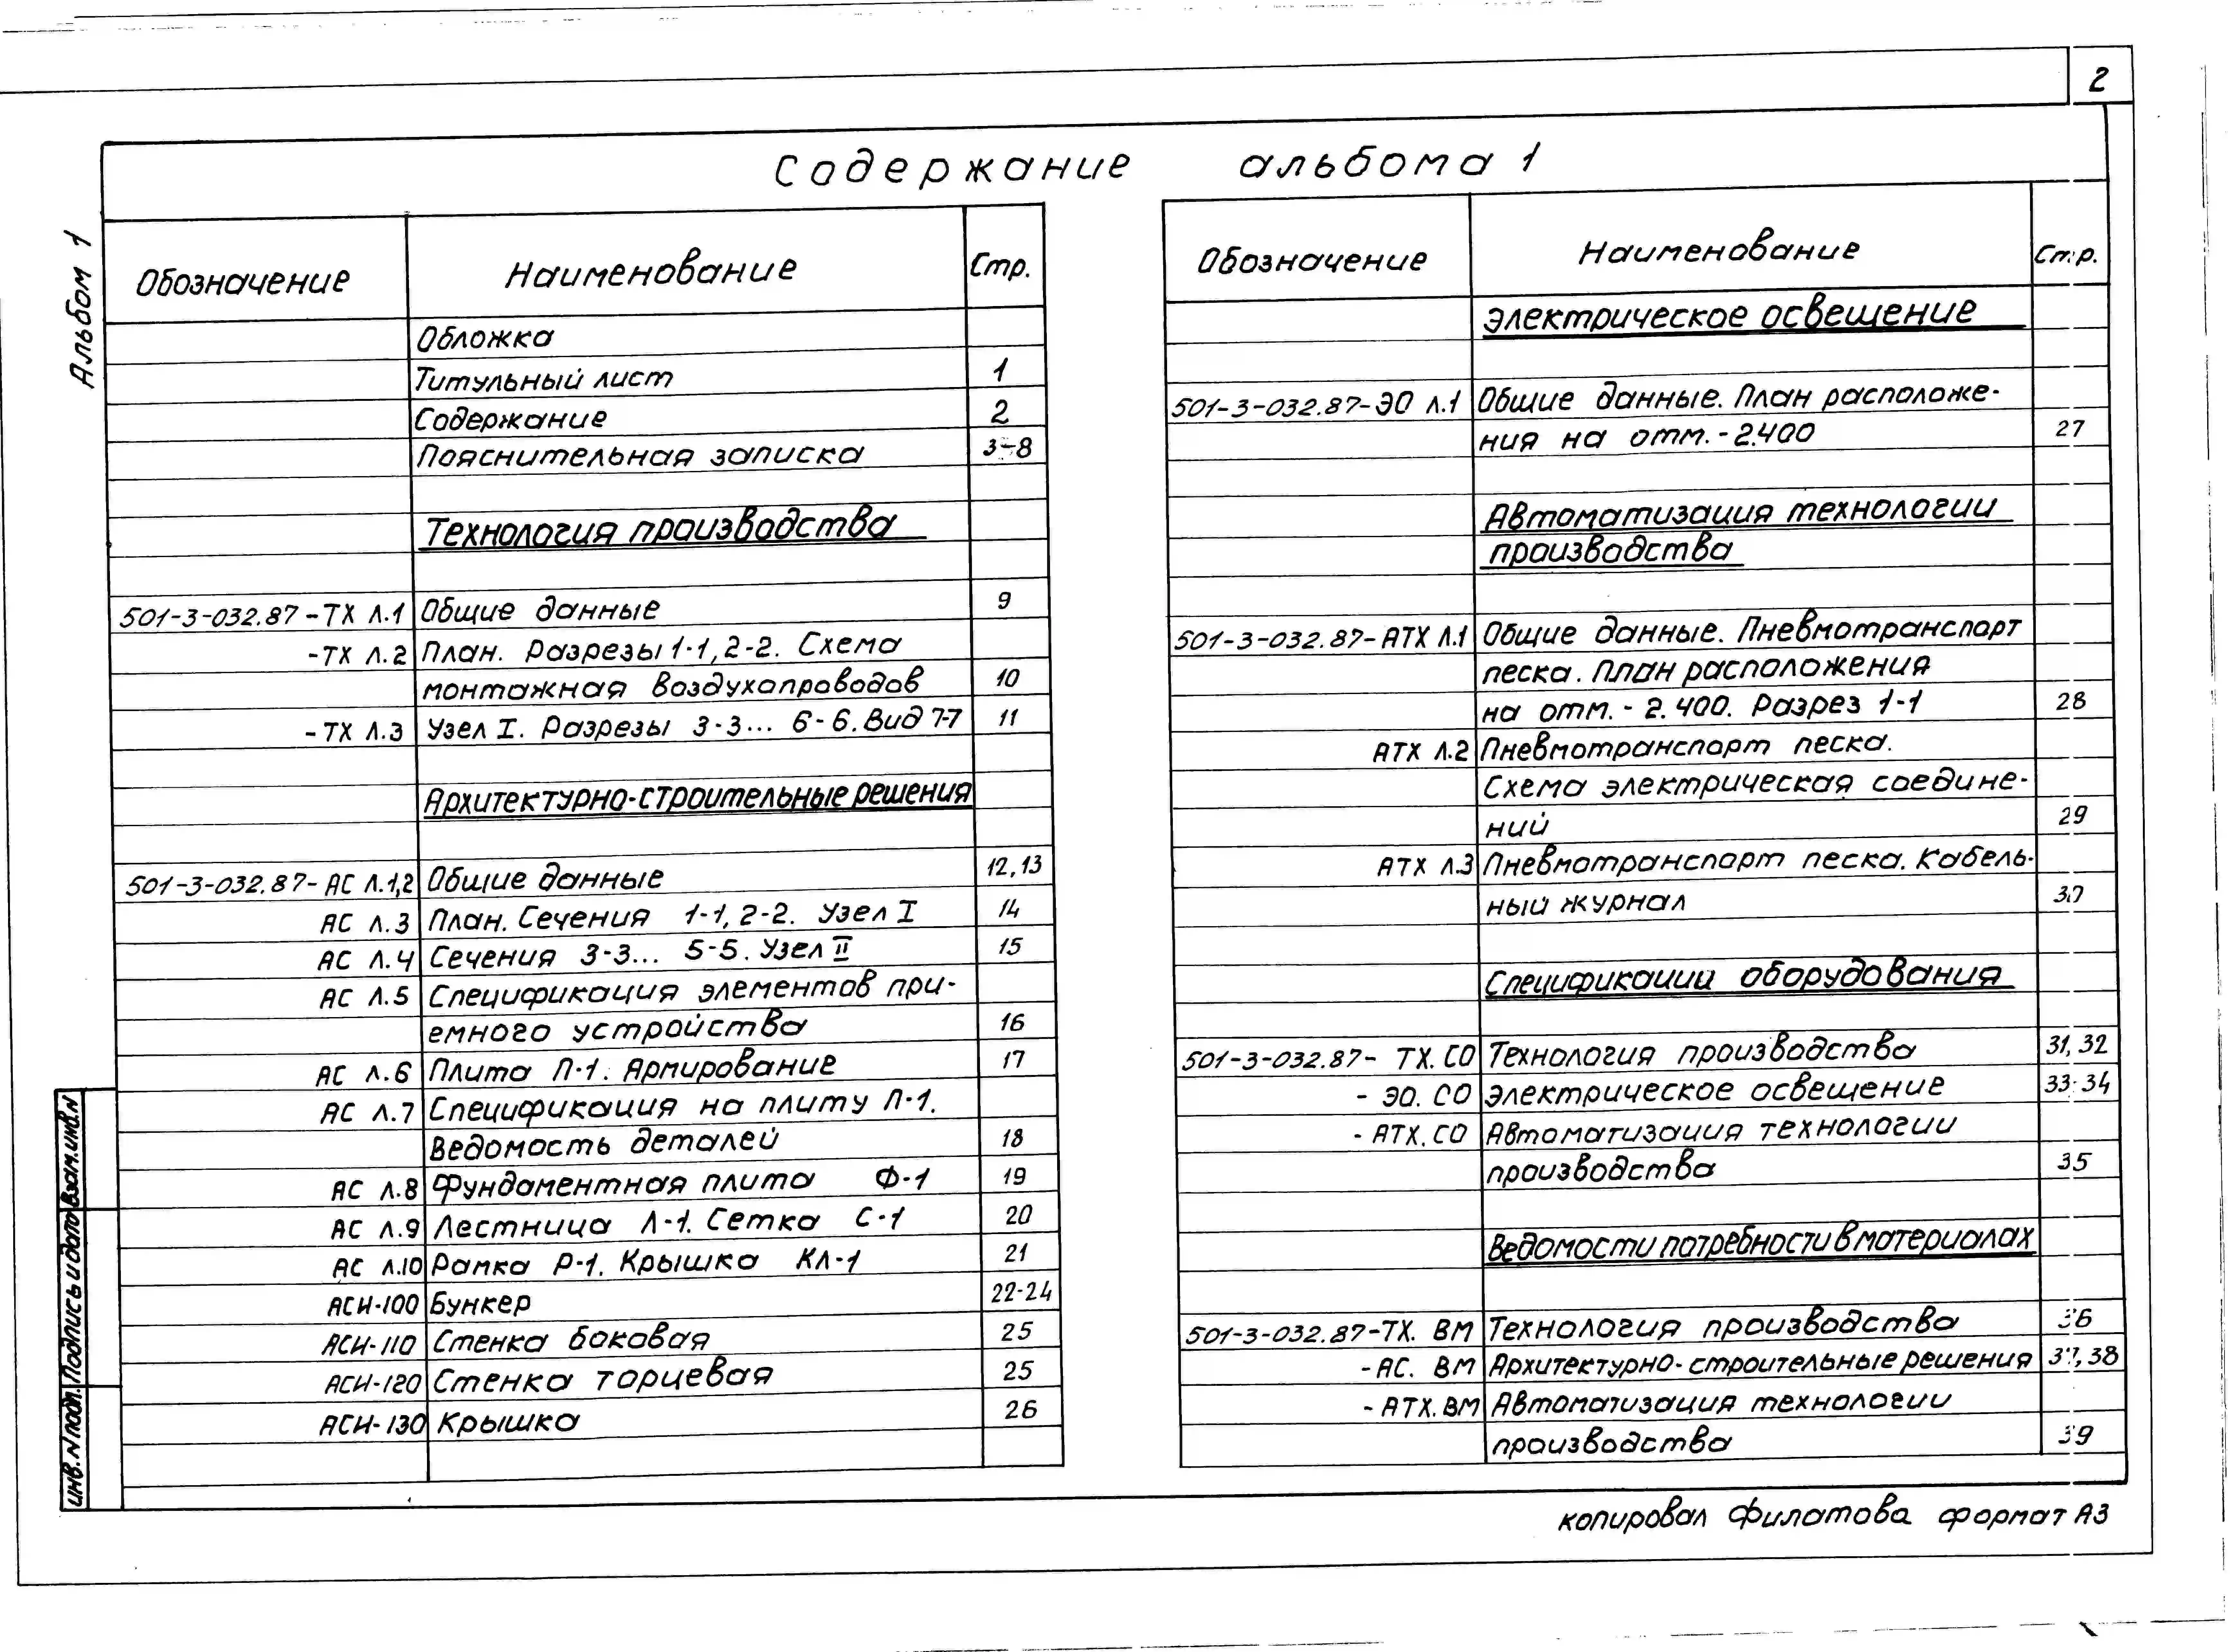 2
Содержание альбома 1
Альбом 1
Обозначение Наименование Стр.
Обложка
Титульный лист 1
Содержание 2
Пояснительная записка 3-8
Технология производства
501-3-032.87-ТХ Л.1 Общие данные 9
-ТХ Л.2 План. Разрезы 1-1, 2-2. Схема
монтажная воздухопроводов 10
-ТХ Л.3 Узел I. Разрезы 3-3... 6-6. Вид 7-7 11
Архитектурно-строительные решения
501-3-032.87-АС Л.1,2 Общие данные 12,13
АС Л.3 План. Сечения 1-1, 2-2. Узел I 14
АС Л.4 Сечения 3-3... 5-5. Узел II 15
АС Л.5 Спецификация элементов при-
емного устройства 16
АС Л.6 Плита П-1. Армирование 17
АС Л.7 Спецификация на плиту П-1.
Ведомость деталей 18
АС Л.8 Фундаментная плита Ф-1 19
АС Л.9 Лестница Л-1. Сетка С-1 20
АС Л.10 Рамка Р-1. Крышка КЛ-1 21
АСИ-100 Бункер 22-24
АСИ-110 Стенка боковая 25
АСИ-120 Стенка торцевая 25
АСИ-130 Крышка 26
Обозначение Наименование Стр.
Электрическое освещение
501-3-032.87-ЭО Л.1 Общие данные. План расположе-
ния на отм. -2.400 27
Автоматизация технологии
производства
501-3-032.87-АТХ Л.1 Общие данные. Пневмотранспорт
песка. План расположения
на отм. -2.400. Разрез 1-1 28
АТХ Л.2 Пневмотранспорт песка.
Схема электрическая соедине-
ний 29
АТХ Л.3 Пневмотранспорт песка. Кабель-
ный журнал 30
Спецификации оборудования
501-3-032.87- ТХ.СО Технология производства 31,32
- ЭО.СО Электрическое освещение 33-34
- АТХ.СО Автоматизация технологии
производства 35
Ведомости потребности в материалах
501-3-032.87-ТХ. ВМ Технология производства 36
-АС. ВМ Архитектурно-строительные решения 37,38
-АТХ.ВМ Автоматизация технологии
производства 39
Инв.N подл. Подпись и дата Взам.инв.N
Копировал Филатова формат А3